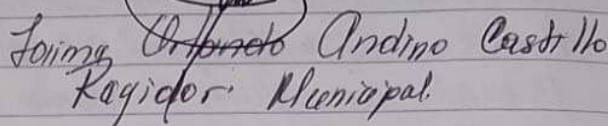 Jaime Orlando Andino Castillo
Regidor Municipal.